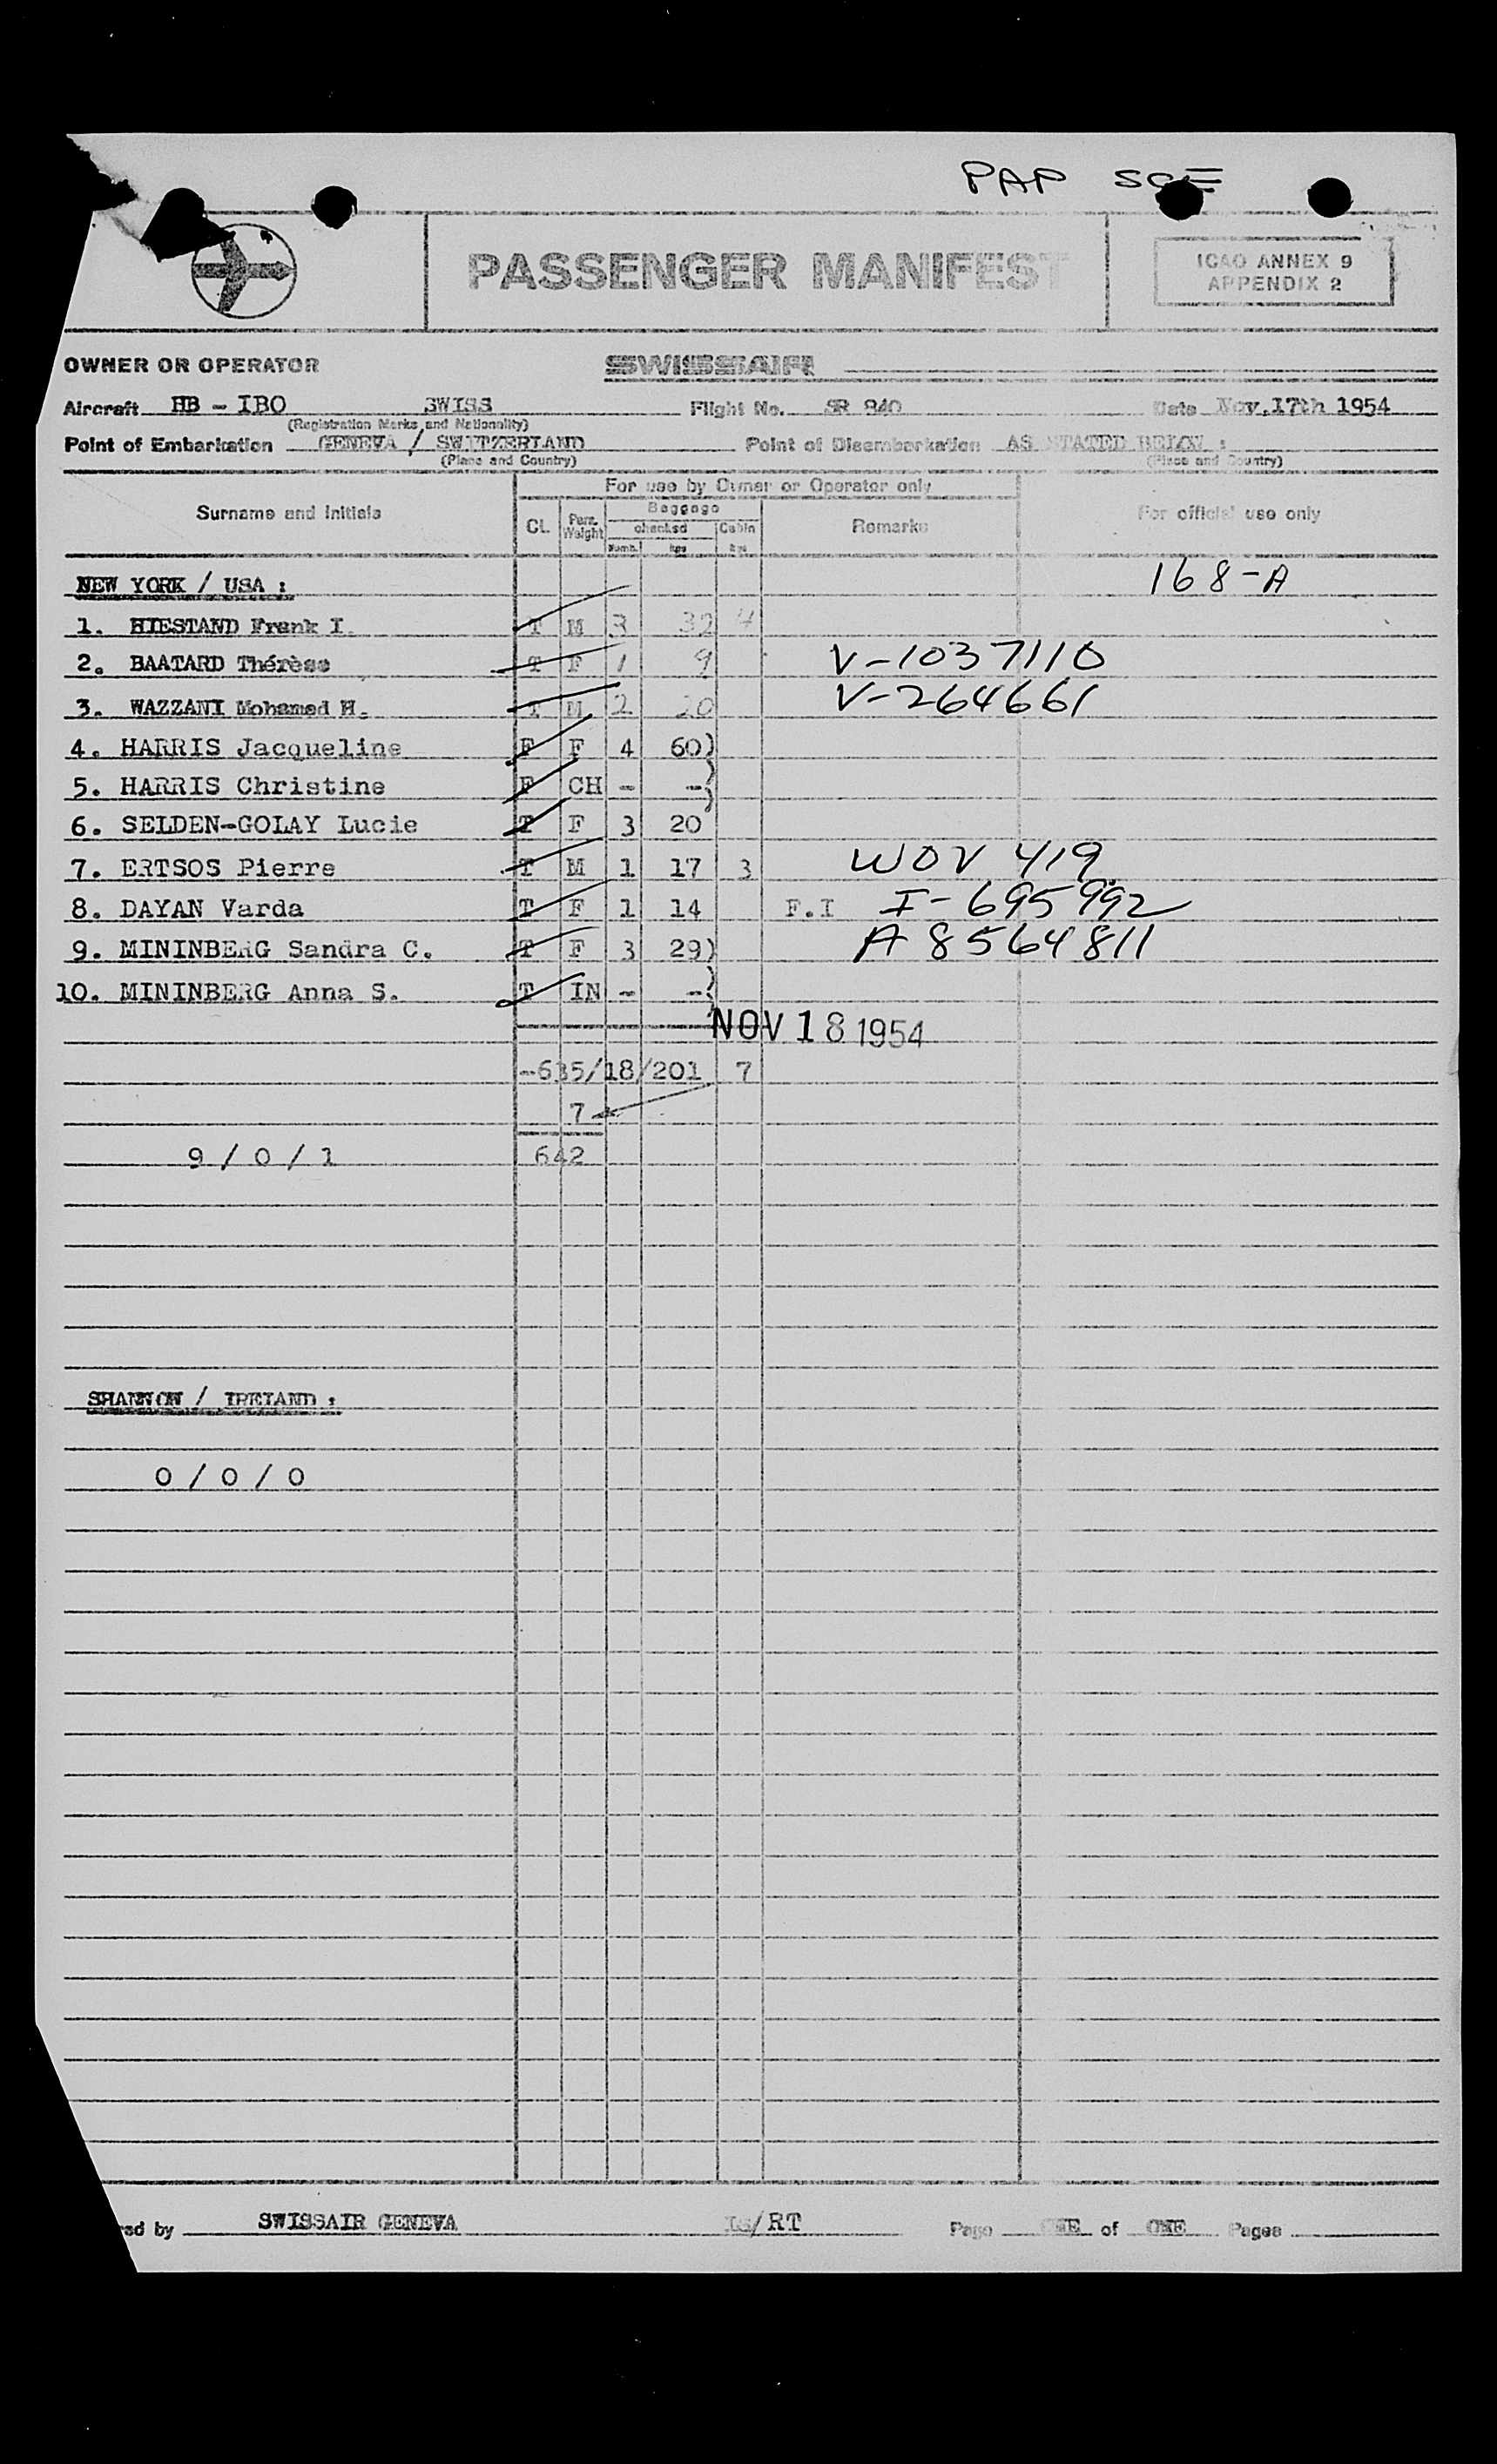 PAP SCE
PASSENGER MANIFEST
ICAO ANNEX 9
APPENDIX 2
OWNER OR OPERATOR SWISSAIR
Aircraft HB - IBO SWISS Flight No. SR 840 Date Nov.17th 1954
(Registration Marks and Nationality)
Point of Embarkation GENEVA / SWITZERLAND Point of Disembarkation AS STATED BELOW :
(Place and Country) (Place and Country)
For use by Owner or Operator only
Surname and Initials CL. Pass. Weight Baggage Remarks For official use only
checked Cabin
Numb. kgs kgs
NEW YORK / USA : 168-A
1. HIESTAND Frank I. T M 3 32 4
2. BAATARD Thérèse T F 1 9 V-1037110
3. WAZZANI Mohamed H. T M 2 20 V-264661
4. HARRIS Jacqueline F F 4 60)
5. HARRIS Christine F CH - -)
6. SELDEN-GOLAY Lucie T F 3 20
7. ERTSOS Pierre T M 1 17 3 WOV 419
8. DAYAN Varda T F 1 14 F.I I-695992
9. MININBERG Sandra C. T F 3 29) A 8564811
10. MININBERG Anna S. T IN - -)
NOV 18 1954
-635/18/201 7
7
9 / 0 / 1 642
SHANNON / IRELAND :
0 / 0 / 0
ed by SWISSAIR GENEVA /RT Page ONE of ONE Pages